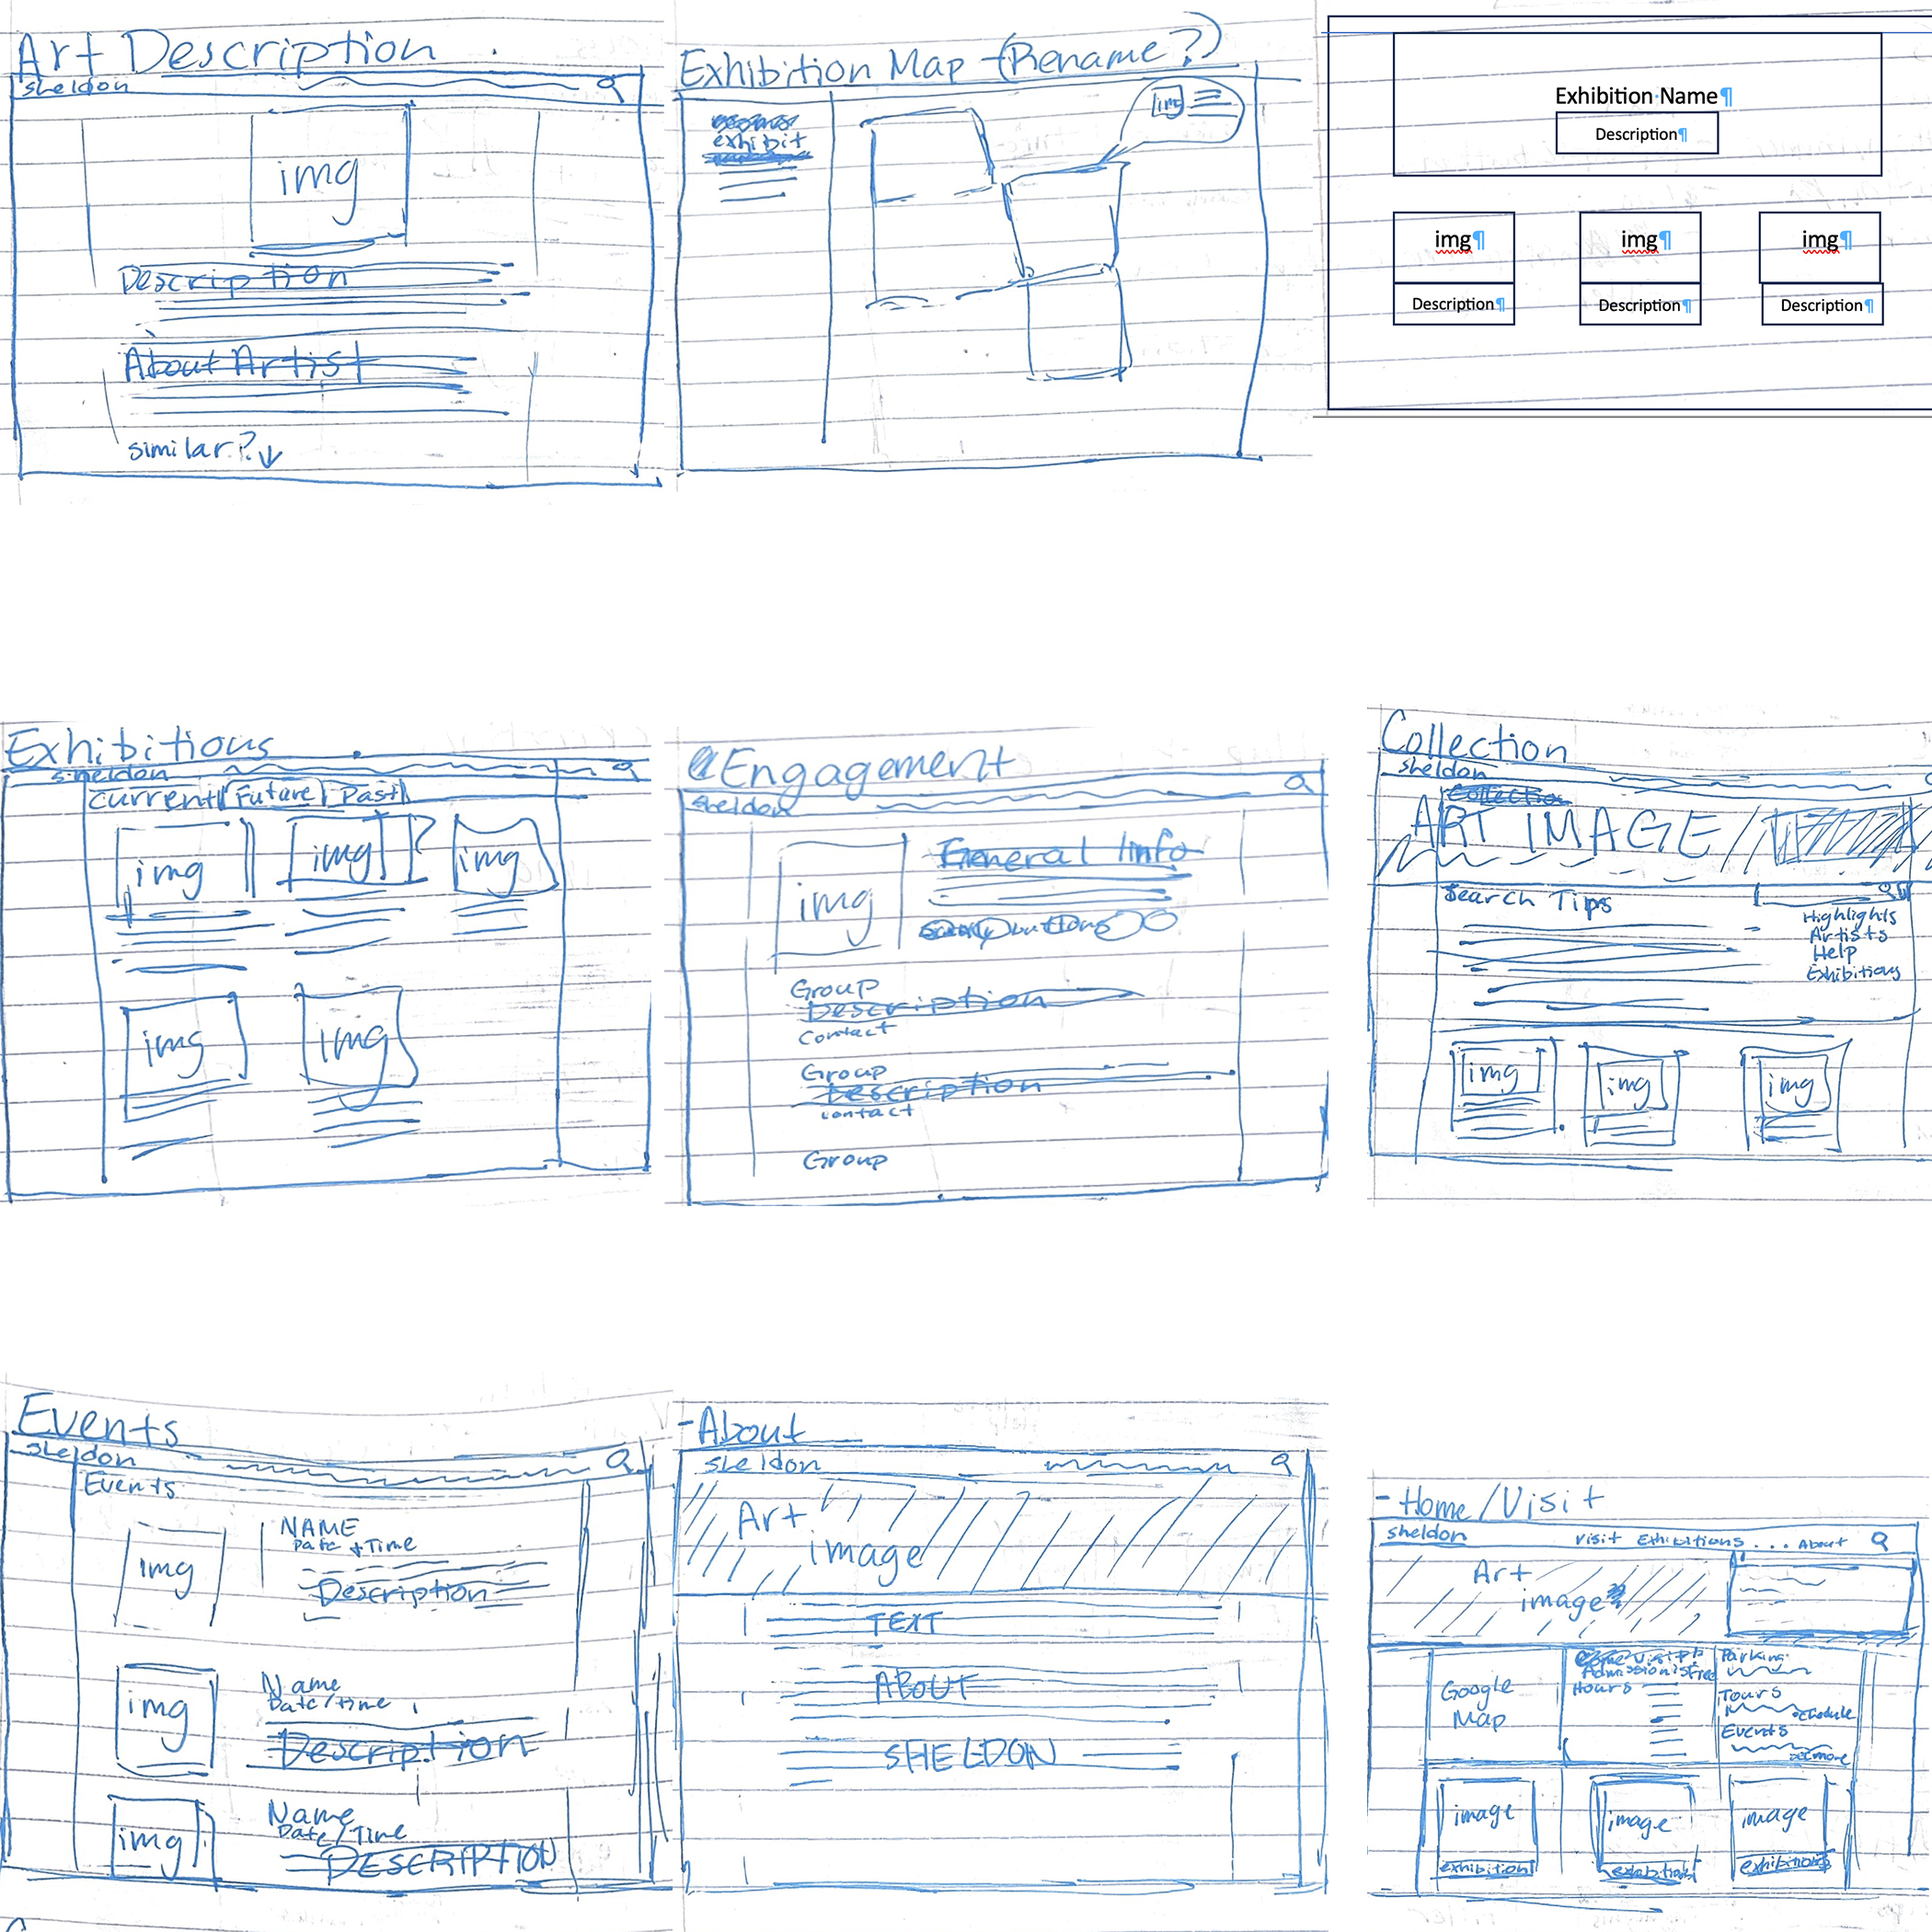 Art Description
sheldon
img
Description
About Artist
similar? ↓
Exhibition Map - (Rename?)
exhibit
img
Exhibition Name¶
Description¶
img¶
img¶
img¶
Description¶
Description¶
Description¶
Exhibitions
sheldon
Current | Future | Past |
img
img
img
img
img
Engagement
sheldon
img
General Info
buttons
Group
Description
Contact
Group
Description
contact
Group
Collection
sheldon
Collection
ART IMAGE
Search Tips
Highlights
Artists
Help
Exhibitions
img
img
img
Events
sheldon
Events
img
NAME
Date + Time
Description
img
Name
Date/time
Description
img
Name
Date/Time
DESCRIPTION
- About
sheldon
Art
image
TEXT
ABOUT
SHELDON
- Home/Visit
sheldon
Visit Exhibitions... About
Art
image
Google
Map
Admission is free
Hours
Parking
Tours
schedule
Events
see more
image
image
image
exhibition
exhibition
exhibition